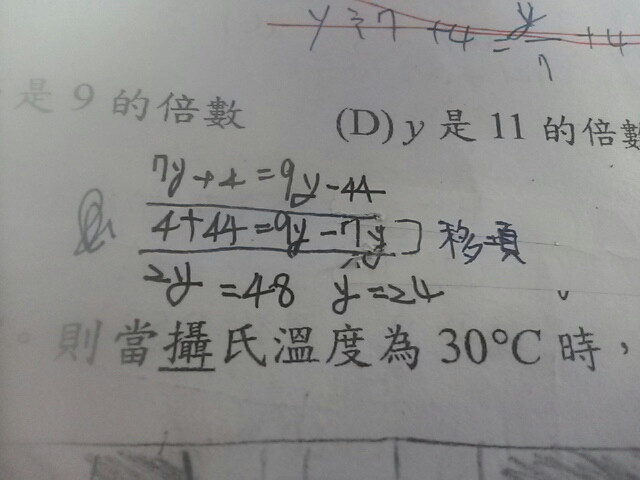 y÷7 +4 = y/7 +4
是 9 的倍數 (D) y 是 11 的倍數
7y+4=9y-44
4+44=9y-7y 移項
2y=48 y=24
。則當攝氏溫度為 30°C 時，